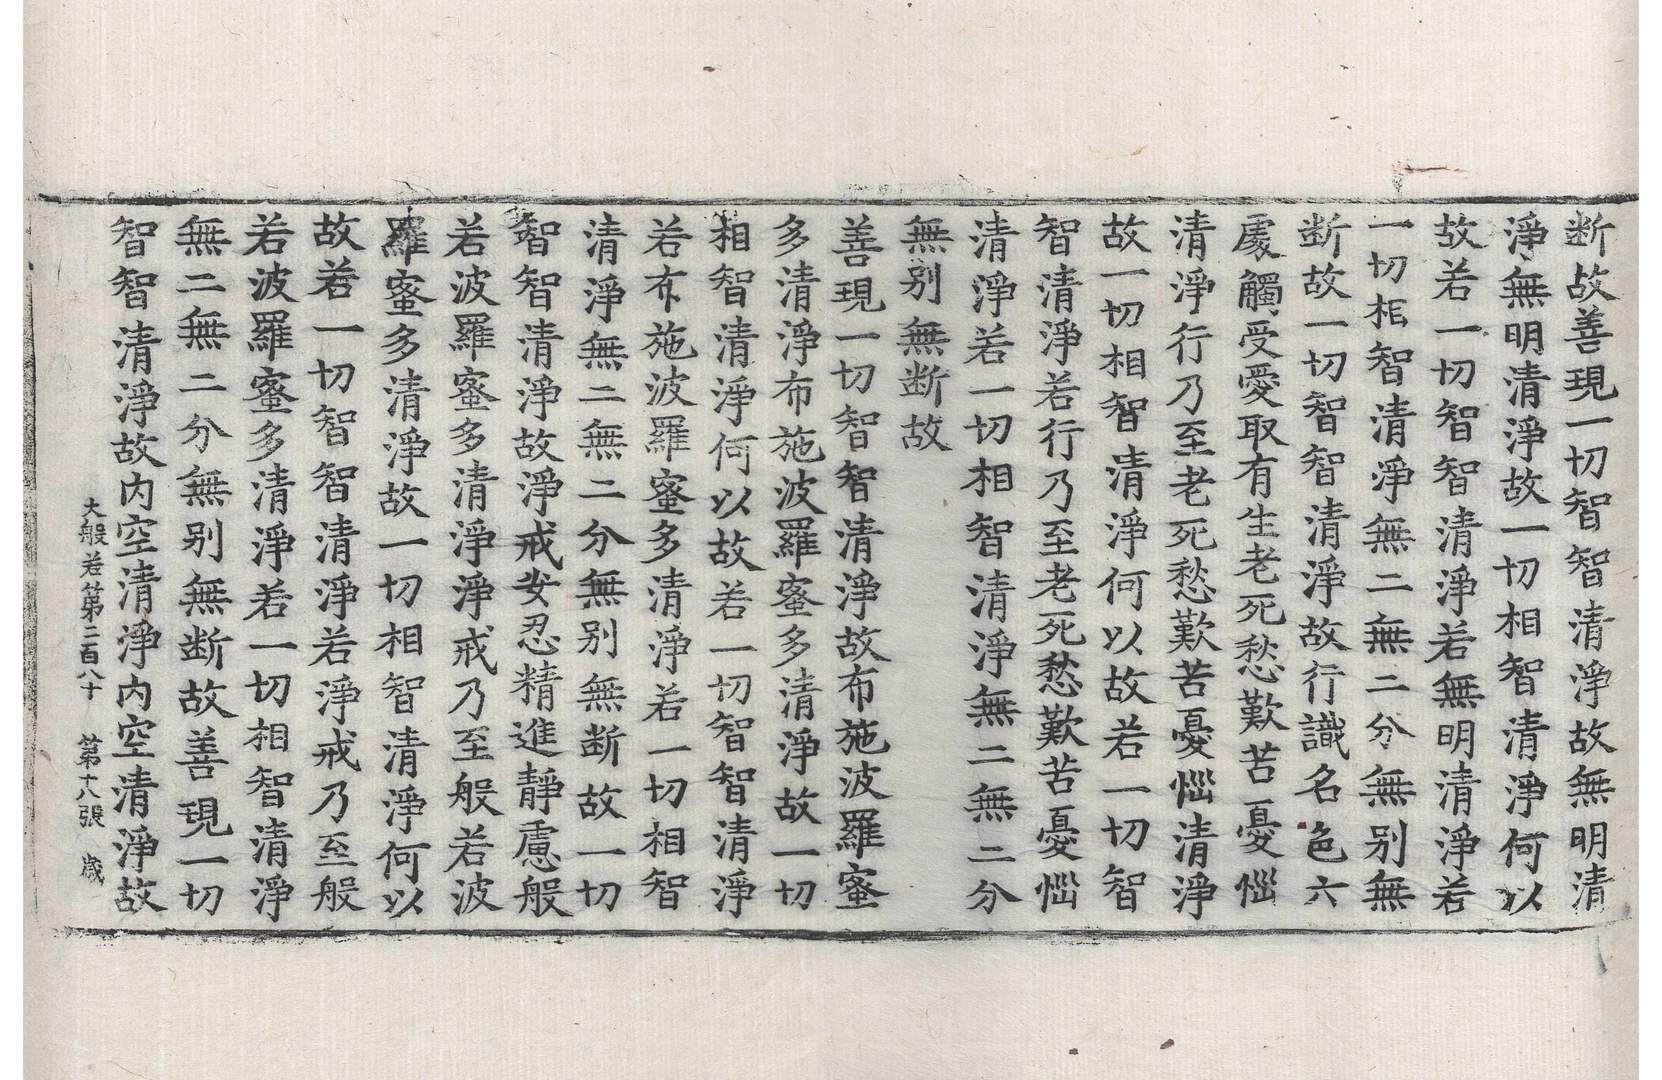 断故善現一切智智清淨故無明清
淨無明清淨故一切相智清淨何以
故若一切智智清淨若無明清淨若
一切相智清淨無二無二分無别無
断故一切智智清淨故行識名色六
處觸受愛取有生老死愁歎苦憂惱
清淨行乃至老死愁歎苦憂惱清淨
故一切相智清淨何以故若一切智
智清淨若行乃至老死愁歎苦憂惱
清淨若一切相智清淨無二無二分
無别無断故
善現一切智智清淨故布施波羅蜜
多清淨布施波羅蜜多清淨故一切
相智清淨何以故若一切智智清淨
若布施波羅蜜多清淨若一切相智
清淨無二無二分無别無断故一切
智智清淨故淨戒安忍精進靜慮般
若波羅蜜多清淨淨戒乃至般若波
羅蜜多清淨故一切相智清淨何以
故若一切智智清淨若淨戒乃至般
若波羅蜜多清淨若一切相智清淨
無二無二分無别無断故善現一切
智智清淨故内空清淨内空清淨故
大般若第二百八十 第十八張 歲